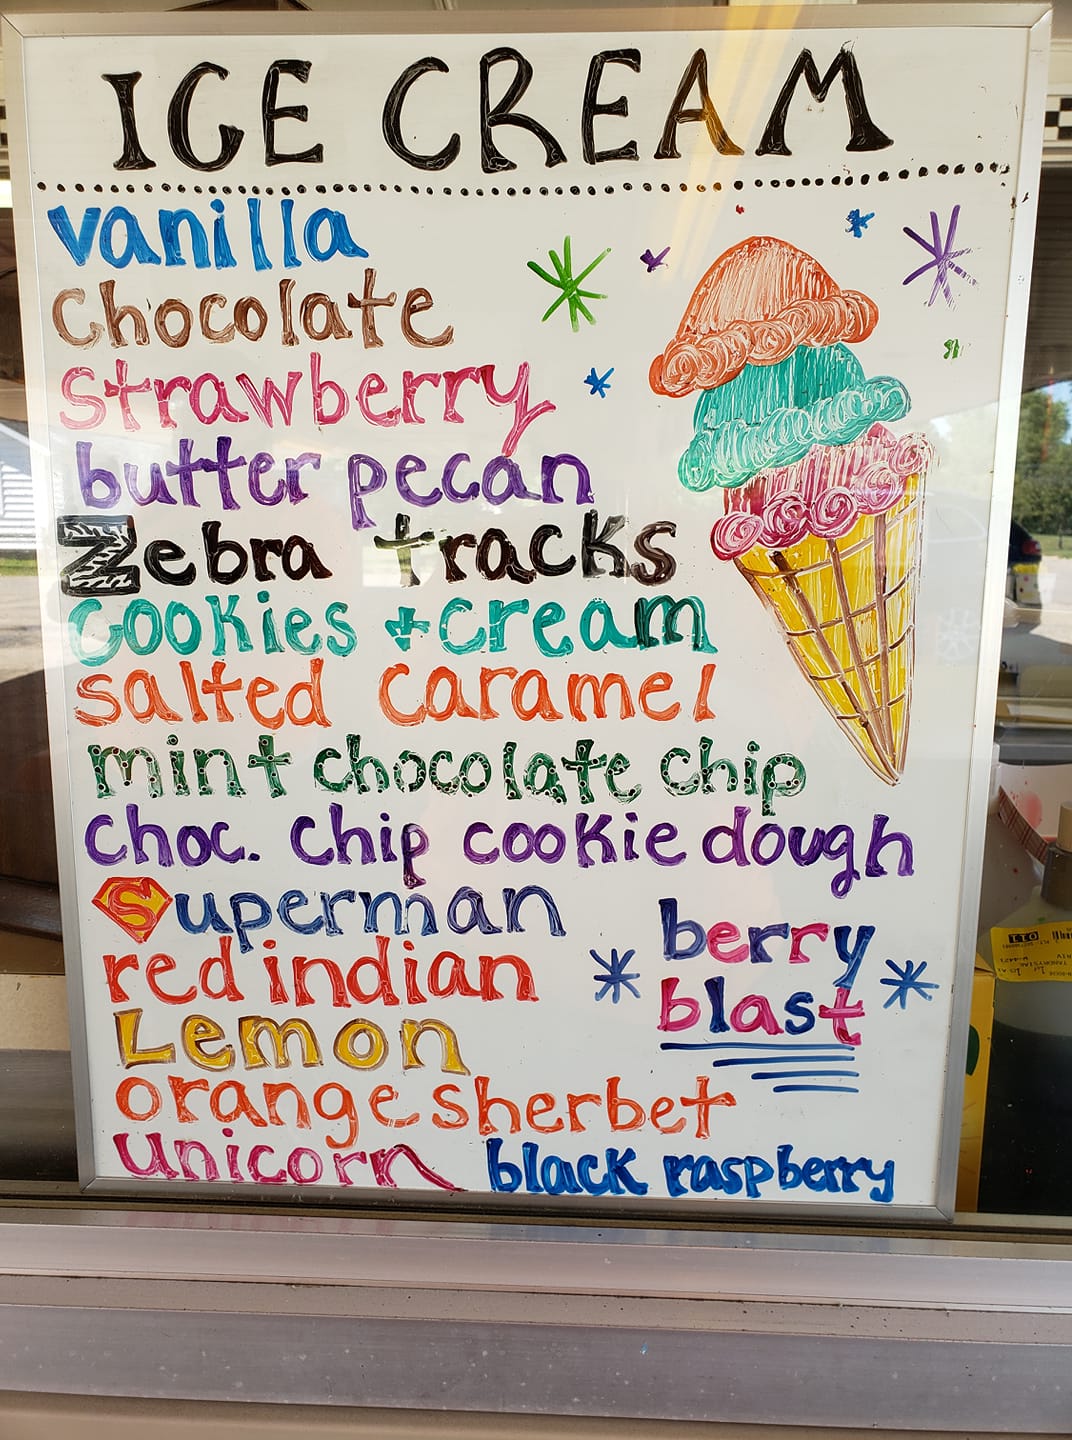 ICE CREAM
vanilla
Chocolate
Strawberry
butter pecan
Zebra tracks
Cookies + cream
salted caramel
mint chocolate chip
choc. chip cookie dough
Superman
red indian
Lemon
orange sherbet
unicorn
berry
blast
black raspberry
ITO